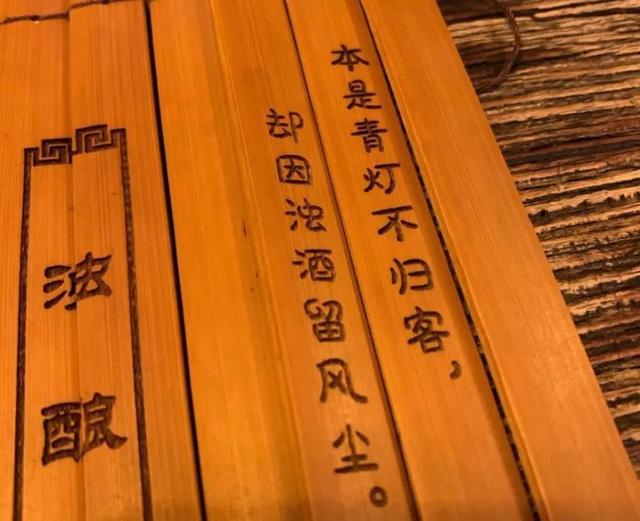 本是青灯不归客，
却因浊酒留风尘。
浊酿